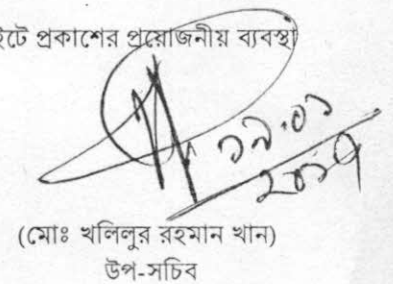 ইটে প্রকাশের প্রয়োজনীয় ব্যবস্থা
১৯.০১
২০১৭
(মোঃ খলিলুর রহমান খান)
উপ-সচিব